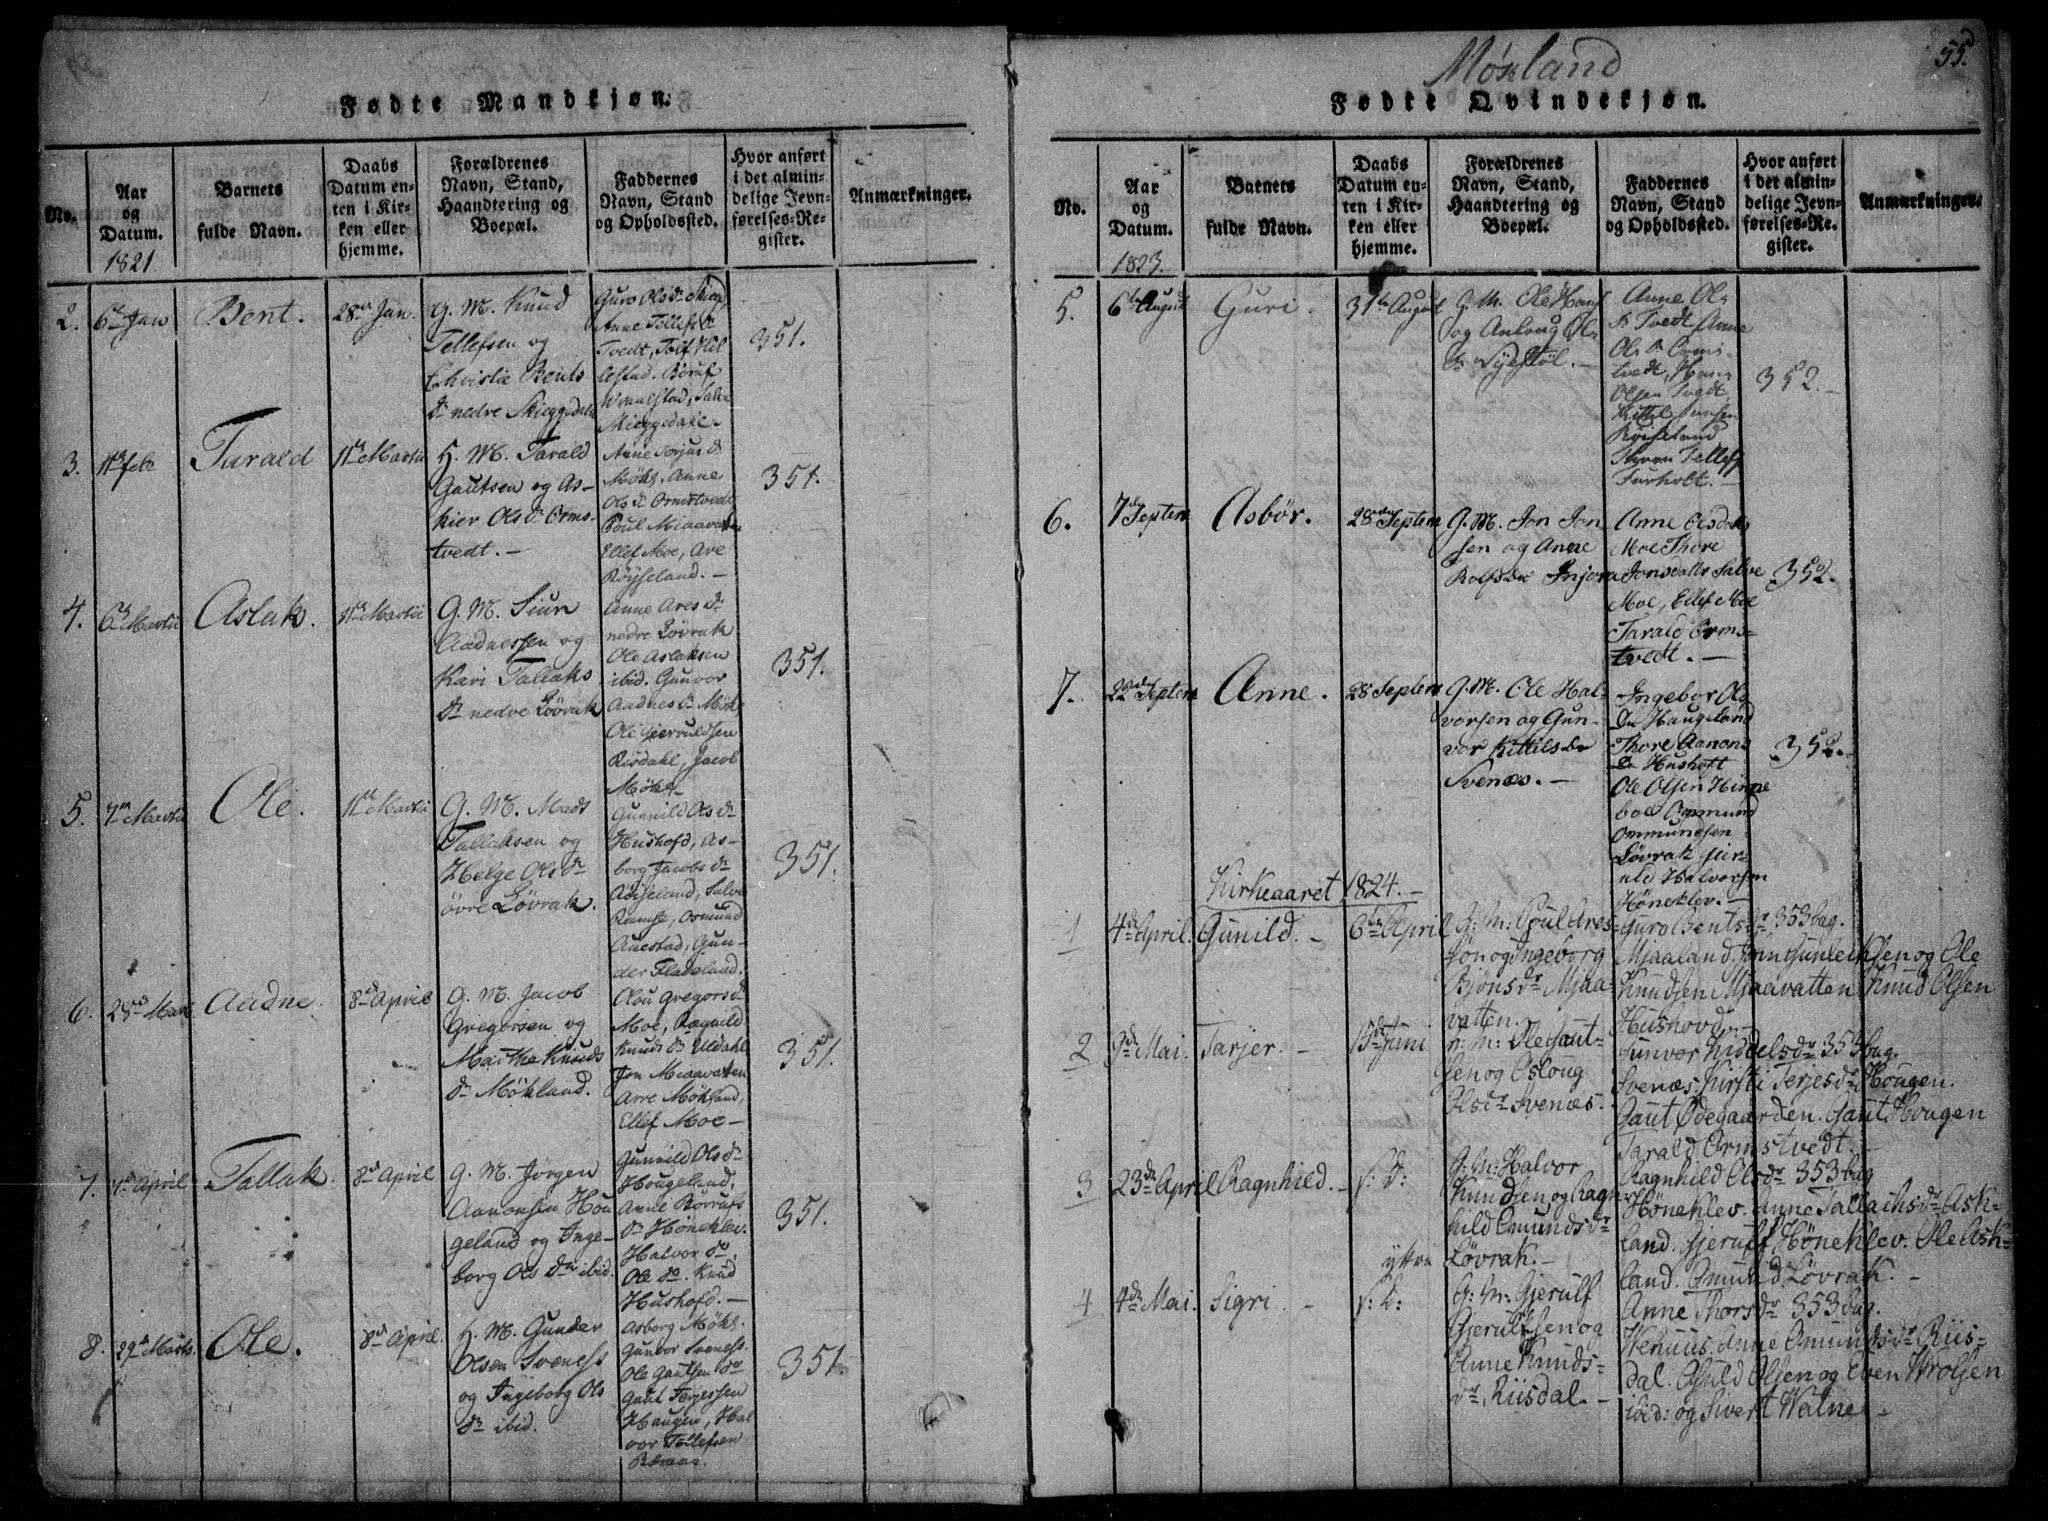 Fødte Mandkjøn.
No.
Aar
og
Datum.
1821
Barnets
fulde Navn.
Daabs
Datum en-
ten i Kir-
ken eller
hjemme.
Forældrenes
Navn, Stand,
Haandtering og
Boepæl.
Faddernes
Navn, Stand
og Opholdssted.
Hvor anført
i det almin-
delige Jevn-
førelses-Re-
gister.
Anmærkninger.
2.
6te Jan
Bent.
28de Jan.
G. M. Knud
Tellefsen og
Christie Bents
Dr nedre Skieggedal
Guro Olsdr Skieg
Anne Tellefsdr
Tvedt, Toif Hel
lestad. Børuf
Wraalstad, Salve
Skieggedahl.
351.
3.
11te febr
Tarald
11te Martii
H. M. Tarald
Gautsen og As-
kier Ols Dr Orms-
tvedt. –
Anne Torjus dr
Møkl. Anne
Ols dr Ormstvedt
Poul Miaavatten
Ellef Moe, Are
Røyseland. –
351.
4.
6te Martii
Aslak.
11te Martii
G. M. Siun
Aadnessen og
Kari Tallaks
Dr nedre Løvrak
Anne Ares dr
nedre Løvrak
Ole Aslaksen
ibid. Gunvor
Aadnes dr Møkl.
Ole Gierruldsen
Risdahl, Jacob
Møkl.
351.
5.
7de Martii
Ole.
11te Martii
G. M. Mads
Tallaksen og
Helge Ols Dr
øvre Løvrak.
Gunnild As dr
Hushofd, As-
borg Jacobs dr
Røiseland, Salve
Ramse, Osmund
Auestad, Gun-
der Fladeland.
351.
6.
25de Mart.
Aadne.
8de April
G. M. Jacob
Gregorsen og
Marthe Knuds
Dr Møkland.
Olou Gregors dr
Moe, Ragnild
Knuds dr Uldahl
Jon Miaavatten
Arre Møkland,
Ellef Moe –
351.
7.
4de April
Tallak.
8de April
G. M. Jørgen
Aanonsen Hou
geland og Inge-
borg Ols Dr ibid.
Gunnild Ols dr
Hougeland,
Anne Rørrufs
dr Høneklev.
Halvor do,
Ole do. Knud
Hushofd. –
351.
8.
29de Marts.
Ole.
8de April.
H. M. Gunder
Olsen Sveness
og Ingeborg Ols
Dr ibid.
Asborg Møkl.
Gunvor Sveness.
Ole Gautsen do
Gaut Terjessen
Haugen, Hal
vor Tellefsen
351.
Møkland
55.
Fødte Qvindekjøn.
No.
Aar
og
Datum.
1823.
Barnets
fulde Navn.
Daabs
Datum en-
ten i Kir-
ken eller
hjemme.
Forældrenes
Navn, Stand,
Haandtering og
Boepæl.
Faddernes
Navn, Stand
og Opholdssted.
Hvor anført
i det almin-
delige Jevn-
førelses-Re-
gister.
Anmærkninger.
5.
6te August
Guri.
31te August
G. M. Ole Hans
og Anlaug Ols
Dr Nyestøl. –
Anne Ols
Dr Tvedt Anne
Ols Dr Orms-
tvedt, Hans
Olsen Tvedt,
Kittil Jensen
Røiseland
Tellefs
Furholt. –
352. –
6.
7de Septem
Asbør.
28de Septem
G. M. Jon Jon
sen og Anne
Rolfsdr Injora
Anne Olsdatter
Moe Thore
Jonsdatter Salve
Moe, Ellef Moe
Tarald Orms-
tvedt. –
352.
7.
22de Septem
Anne.
28 Septem
G. M. Ole Hal-
vorsen og Gun-
vor Kittils dr
Svenæs. –
Ingebor Ols
Dr Haugeland
Thore Aanons
Dr Hushoft
Ole Olsen Hinne
boe Ommund
Ommundsen
Løvrak Gier-
uld Halvorsen
Høneklev. –
352.
Kirkeaaret 1824. –
1
4de April.
Gunild. –
6te April
G: M: Poul Ares-
søn og Ingeborg
Bjønsdr Mjaa-
vatten. –
Guro Bentsdr 353 bag.
Mjaaland. Jonn Gunleiksen og Ole
Knudsen Mjaavatten Knud Olsen
Hushovd. –
2
9de Mai.
Tarjer. –
15de Juni
G: M: Ole Gaut-
sen og Osloug
Olsdr Svenæs. –
Gunvor Kiddelsdr 353 bag.
Svenæs. Kirsti Terjesdr Hougen.
Gaut Ødegaarden. Gaut Hougen
Tarald Ormstvedt. –
3
23de April
Ragnhild. –
s: D:
G: M: Halvor
Knudsen og Ragn-
hild Omundsdr
yttre Løvrak. –
Ragnhild Olsdr 353 bag
Høneklev. Anne Tallachsdr Ask-
land. Gjerulf Høneklev. Ole Ask-
land. Omund Løvrak. –
4
4de Mai.
Sigri –
s: D:
G: M: Gjerulf
Gjerulfsen og
Anne Knuds-
dr, Riisdal. –
Anne Thorsdr 353 bag.
Wehuus. Anne Omundsdr Riis-
dal. Osuld Olsen og Even Wrolsen
ibid: og Sivert Watne. –